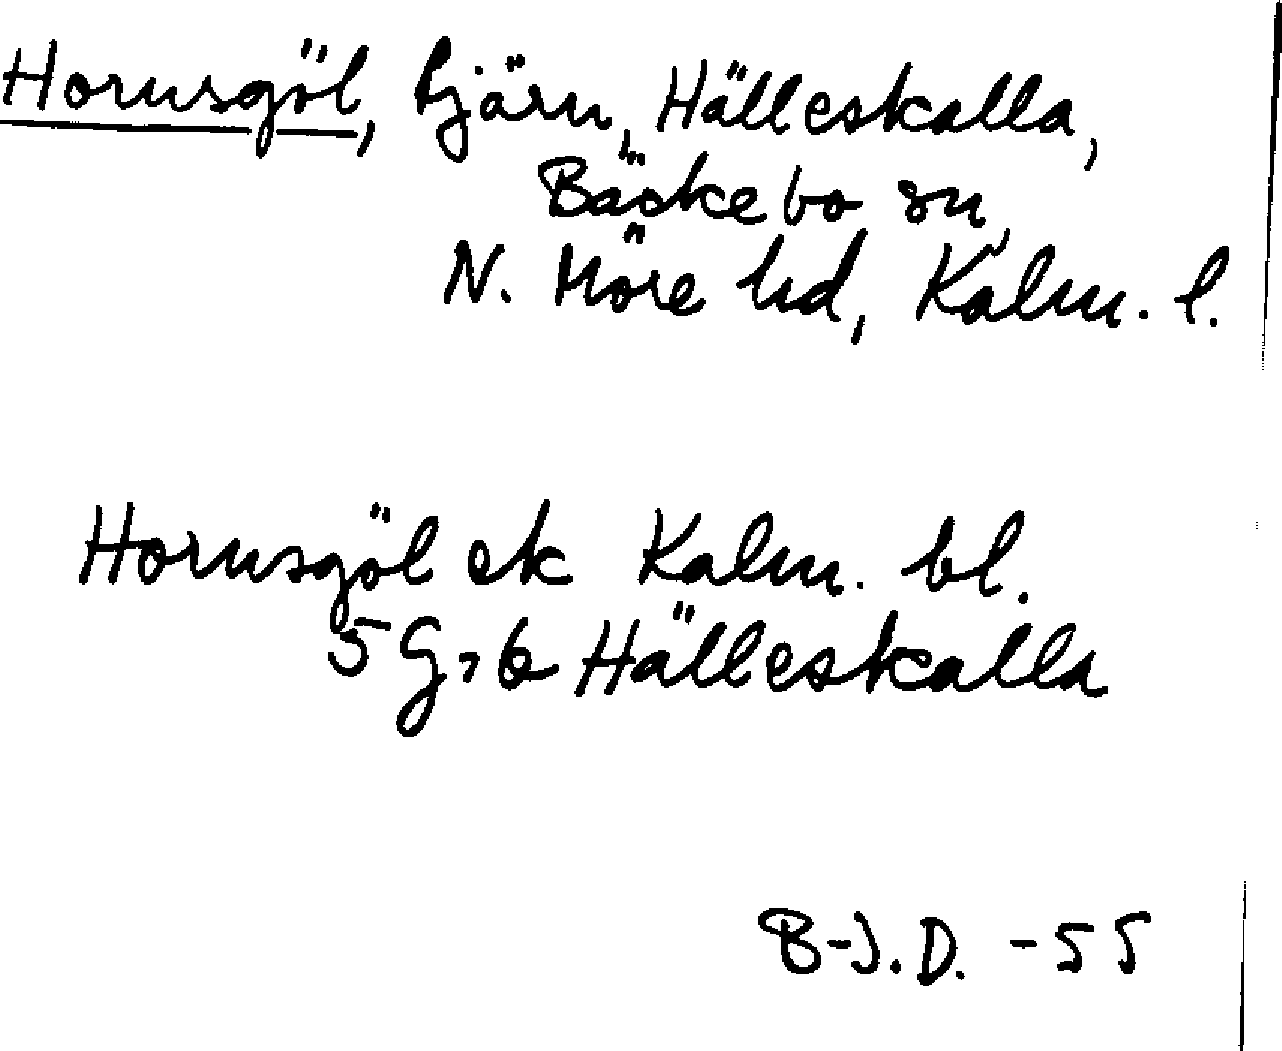 Hornsgöl, tjärn, Hälleskalla,
Bäckebo sn,
N. Möre hd, Kalm. l.
Hornsgöl ek Kalm. bl.
5 G, b Hälleskalla
B-J.D. -55